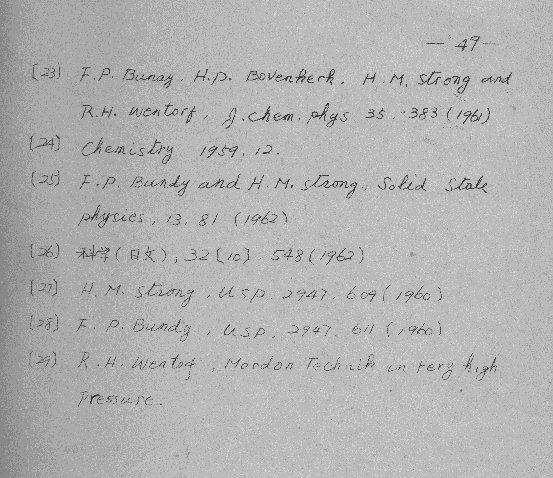 — 49 —
[23] F.P. Bunay, H.P. Bovenkerk. H.M. strong and
R.H. Wentorf, J. chem. phys 35. 383 (1961)
[24] Chemistry 1959, 12.
[25] F.P. Bundy and H.M. strong, Solid State
physics, 13, 81 (1962)
[26] 科学(日文), 32[10]. 548(1962)
[27] H.M. Strong, U.S.P. 2947. 609(1960)
[28] F. P. Bundy, U.S.P. 2947. 611 (1960)
[29] R.H. Wentorf, Mordon Technik in very high
pressure.